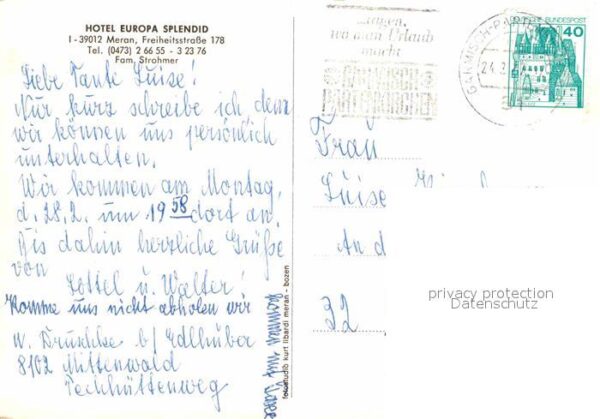 HOTEL EUROPA SPLENDID
I - 39012 Meran, Freiheitsstraße 178
Tel. (0473) 2 66 55 - 3 23 76
Fam. Strohmer
Liebe Tante Luise!
Nur kurz schreibe ich denn
wir können uns persönlich
unterhalten.
Wir kommen am Montag,
d. 28.2. um 19 58 dort an.
Bis dahin herzliche Grüße
von
Lottel u. Walter!
Komme uns nicht abholen wir
kommen mit Taxe
W. Druschke b/ Edlhuber
8102 Mittenwald
Pechhüttenweg
fotostudio kurt libardi meran - bozen
sagen,
wo man Urlaub
macht
GARMISCH-
PARTENKIRCHEN
GARMISCH-PARTE
24.2.
DEUTSCHE BUNDESPOST
40
Frau
Luise
An d
32
privacy protection
Datenschutz